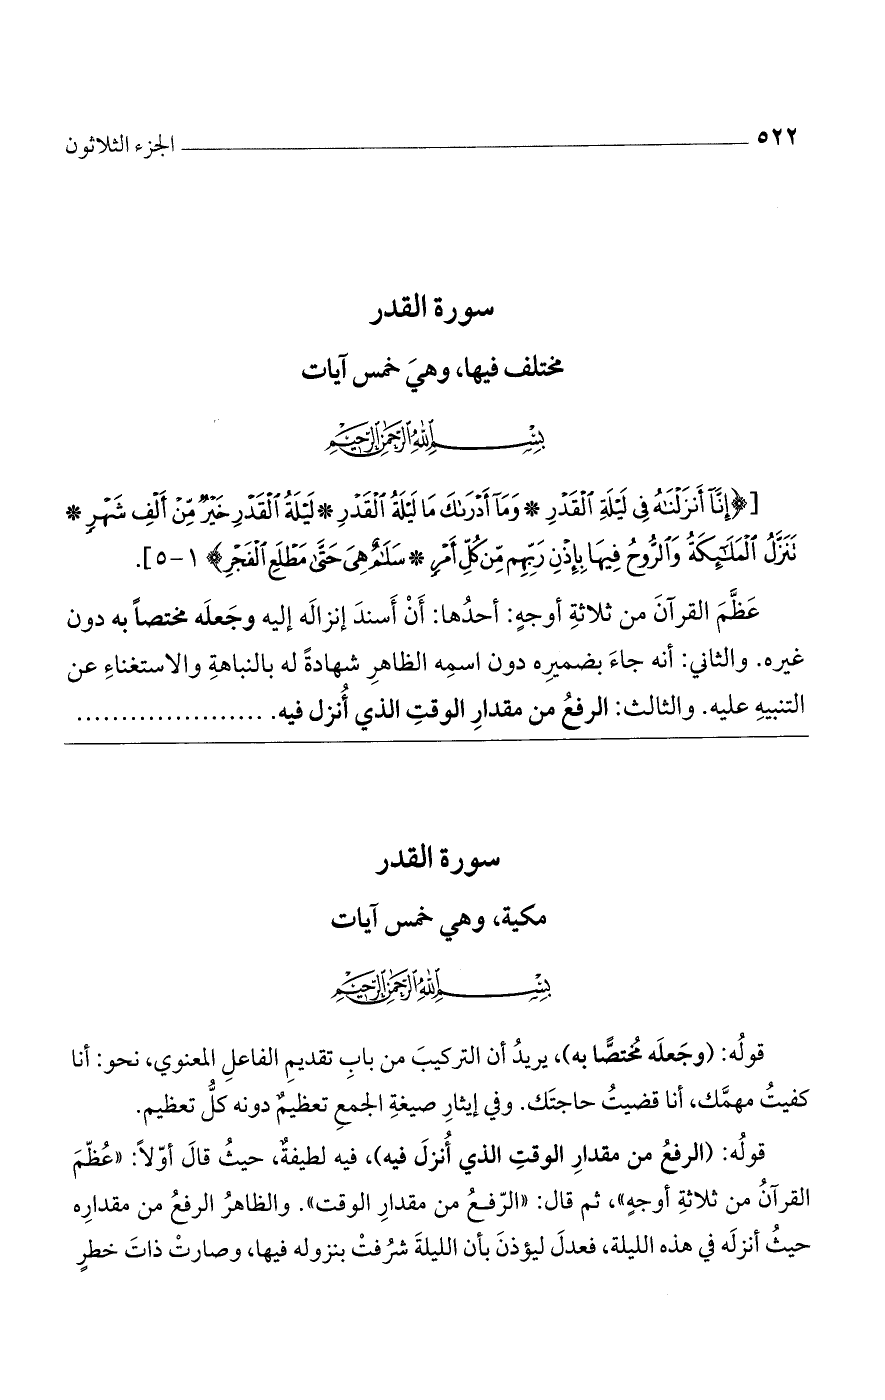 ٥٢٢ الجزء الثلاثون
سورة القدر
مختلف فيها، وهيَ خمس آيات
بِسْمِ اللَّهِ الرَّحْمَٰنِ الرَّحِيمِ
[﴿إِنَّآ أَنزَلْنَٰهُ فِى لَيْلَةِ ٱلْقَدْرِ * وَمَآ أَدْرَىٰكَ مَا لَيْلَةُ ٱلْقَدْرِ * لَيْلَةُ ٱلْقَدْرِ خَيْرٌ مِّنْ أَلْفِ شَهْرٍ *
نَنَزَّلُ ٱلْمَلَٰٓئِكَةُ وَٱلرُّوحُ فِيهَا بِإِذْنِ رَبِّهِم مِّن كُلِّ أَمْرٍ * سَلَٰمٌ هِىَ حَتَّىٰ مَطْلَعِ ٱلْفَجْرِ﴾ ١-٥].
عَظَّمَ القرآنَ من ثلاثةِ أوجهٍ: أحدُها: أنْ أَسندَ إنزالَه إليه وجَعلَه مختصاً به دون
غيره. والثاني: أنه جاءَ بضميرِه دون اسمِه الظاهرِ شهادةً له بالنباهةِ والاستغناءِ عن
التنبيهِ عليه. والثالث: الرفعُ من مقدارِ الوقتِ الذي أُنزل فيه. .....................
سورة القدر
مكية، وهي خمس آيات
بِسْمِ اللَّهِ الرَّحْمَٰنِ الرَّحِيمِ
قولُه: (وجَعلَه مُختصًّا به)، يريدُ أن التركيبَ من بابِ تقديمِ الفاعلِ المعنوي، نحو: أنا
كفيتُ مهمَّك، أنا قضيتُ حاجتَك. وفي إيثارِ صيغةِ الجمعِ تعظيمٌ دونه كلُّ تعظيم.
قولُه: (الرفعُ من مقدارِ الوقتِ الذي أُنزلَ فيه)، فيه لطيفةٌ، حيثُ قالَ أوّلاً: «عُظّمَ
القرآنُ من ثلاثةِ أوجهٍ»، ثم قال: «الرّفعُ من مقدارِ الوقت». والظاهرُ الرفعُ من مقدارِه
حيثُ أنزلَه في هذه الليلة، فعدلَ ليؤذنَ بأن الليلةَ شرُفتْ بنزوله فيها، وصارتْ ذاتَ خطرٍ